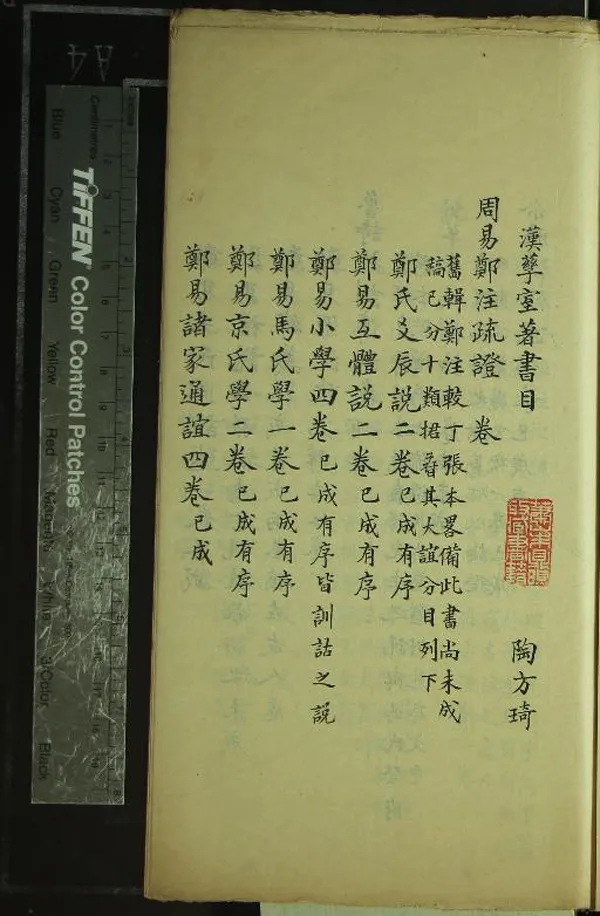 漢孳室著書目 陶方琦
周易鄭注疏證 卷
舊輯鄭注較丁張本畧備此書尚未成
稿已分十類捃𦭘其大誼分目列下
鄭氏爻辰說二卷已成有序
鄭易互體說二卷已成有序
鄭易小學四卷已成有序皆訓詁之說
鄭易馬氏學一卷已成有序
鄭易京氏學二卷已成有序
鄭易諸家通誼四卷已成
A4
Centimetres
Inches
TIFFEN® Color Control Patches
Blue
Cyan
Green
Yellow
Red
Magenta
White
3/Color
Black